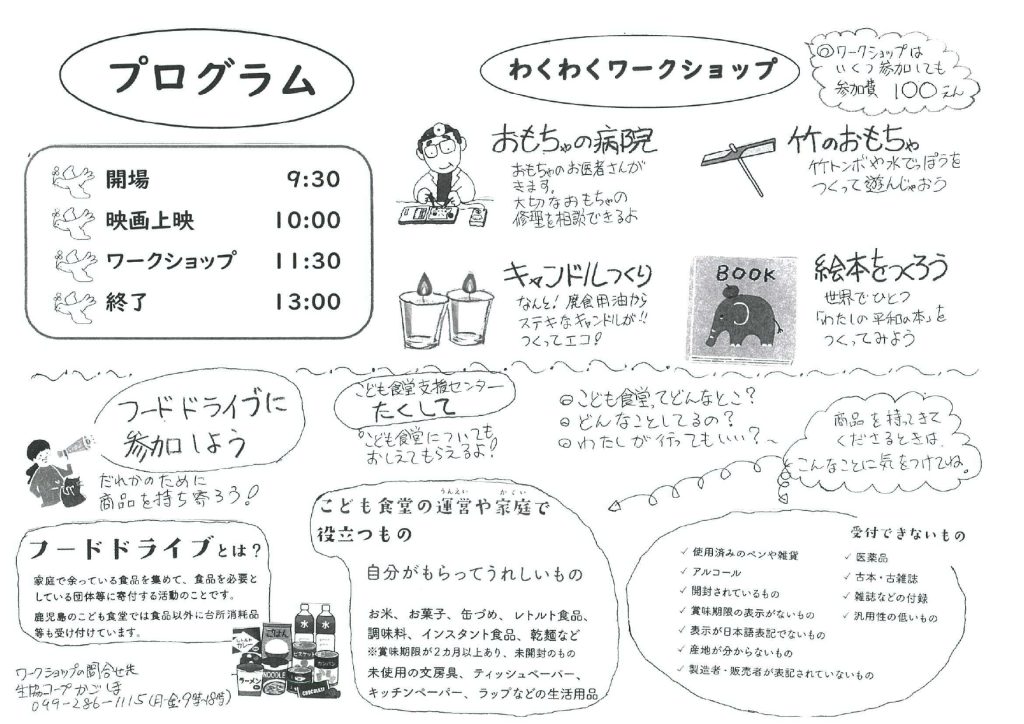 プログラム
開場 9:30
映画上映 10:00
ワークショップ 11:30
終了 13:00
わくわくワークショップ
◎ワークショップは
いくつ参加しても
参加費 100えん
おもちゃの病院
おもちゃのお医者さんが
きます。
大切なおもちゃの
修理を相談できるよ
竹のおもちゃ
竹トンボや水でっぽうを
つくって遊んじゃおう
キャンドルつくり
なんと！廃食用油から
ステキなキャンドルが!!
つくってエコ！
BOOK
絵本をつくろう
世界でひとつ
「わたしの平和の本」を
つくってみよう
フードドライブに
参加しよう
だれかのために
商品を持ち寄ろう！
こども食堂支援センター
たくして
こども食堂についても
おしえてもらえるよ！
◎こども食堂ってどんなとこ？
◎どんなことしてるの？
◎わたしが行ってもいい？～
商品を持ってきて
くださるときは、
こんなことに気をつけてね。
フードドライブとは？
家庭で余っている食品を集めて、食品を必要と
している団体等に寄付する活動のことです。
鹿児島のこども食堂では食品以外に台所消耗品
等も受け付けています。
ワークショップの問合せ先
生協コープかごしま
099-286-1115(月-金・9時-18時)
水
水
ごはん
レトルト
カレー
ビスケット
カンパン
ラーメン
NOODLE
CHOCOLATE
うんえい かてい
こども食堂の運営や家庭で
役立つもの
自分がもらってうれしいもの
お米、お菓子、缶づめ、レトルト食品、
調味料、インスタント食品、乾麺など
※賞味期限が2カ月以上あり、未開封のもの
未使用の文房具、ティッシュペーパー、
キッチンペーパー、ラップなどの生活用品
受付できないもの
✓ 使用済みのペンや雑貨
✓ アルコール
✓ 開封されているもの
✓ 賞味期限の表示がないもの
✓ 表示が日本語表記でないもの
✓ 産地が分からないもの
✓ 製造者・販売者が表記されていないもの
✓ 医薬品
✓ 古本・古雑誌
✓ 雑誌などの付録
✓ 汎用性の低いもの